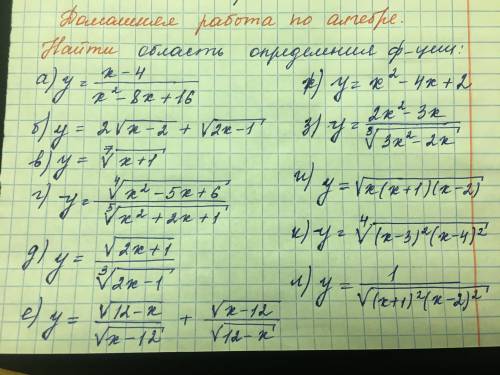 Домашняя работа по алгебре.
Найти область определения ф-ции:
а) y = (x-4)/(x²-8x+16)
б) y = 2√(x-2) + √(2x-1)
в) y = ⁷√(x+1)
г) y = ⁴√(x²-5x+6)/⁵√(x²+2x+1)
д) y = √(2x+1)/³√(2x-1)
е) y = √(12-x)/√(x-12) + √(x-12)/√(12-x)
ж) y = x²-4x+2
з) y = (2x²-3x)/³√(3x²-2x)
и) y = √(x(x+1)(x-2))
к) y = ⁴√((x-3)²(x-4)²)
л) y = 1/√((x+1)²(x-2)²)